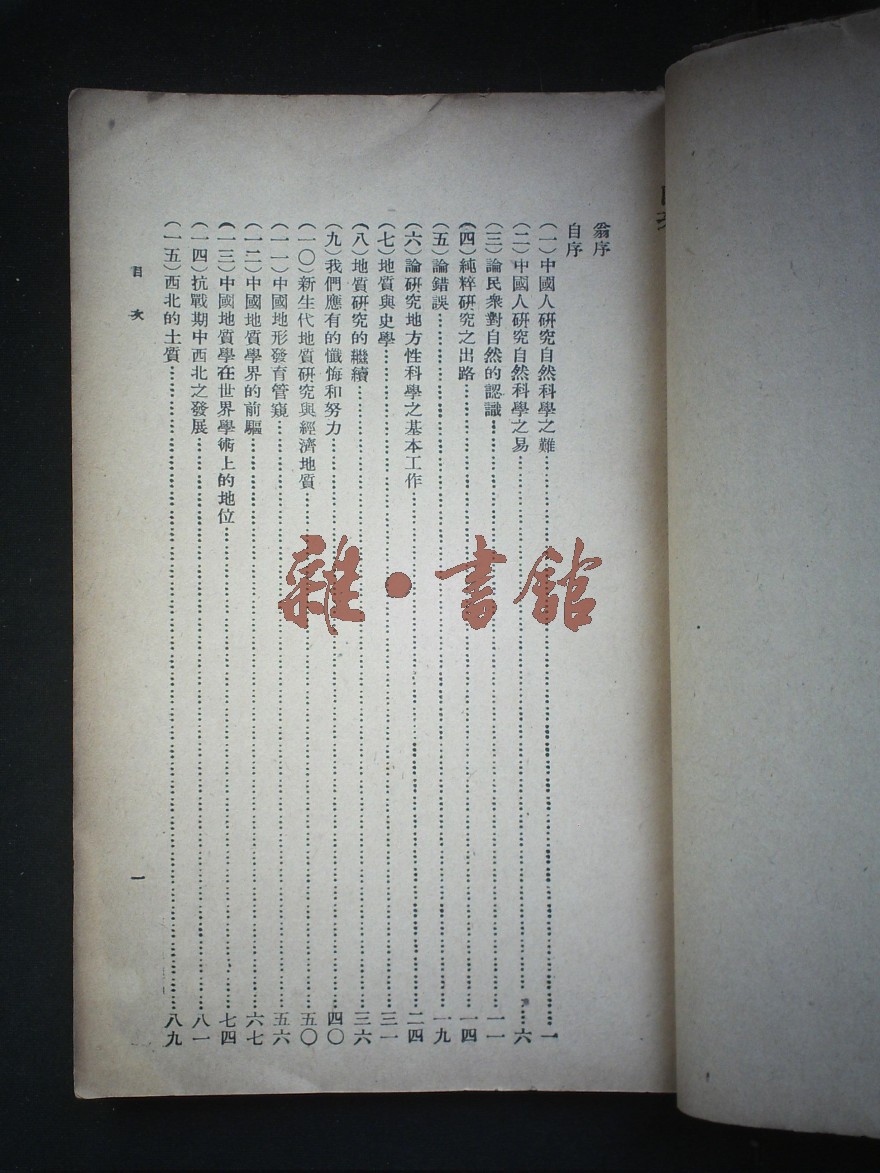 翁序
自序
(一)中國人研究自然科學之難……一
(二)中國人研究自然科學之易……六
(三)論民衆對自然的認識……一一
(四)純粹研究之出路……一四
(五)論錯誤……一九
(六)論研究地方性科學之基本工作……二四
(七)地質與史學……三一
(八)地質研究的繼續……三六
(九)我們應有的懺悔和努力……四〇
(一〇)新生代地質研究與經濟地質……五〇
(一一)中國地形發育管窺……五六
(一二)中國地質學界的前驅……六七
(一三)中國地質學在世界學術上的地位……七四
(一四)抗戰期中西北之發展……八一
(一五)西北的土質……八九
目次
一
雜·書館